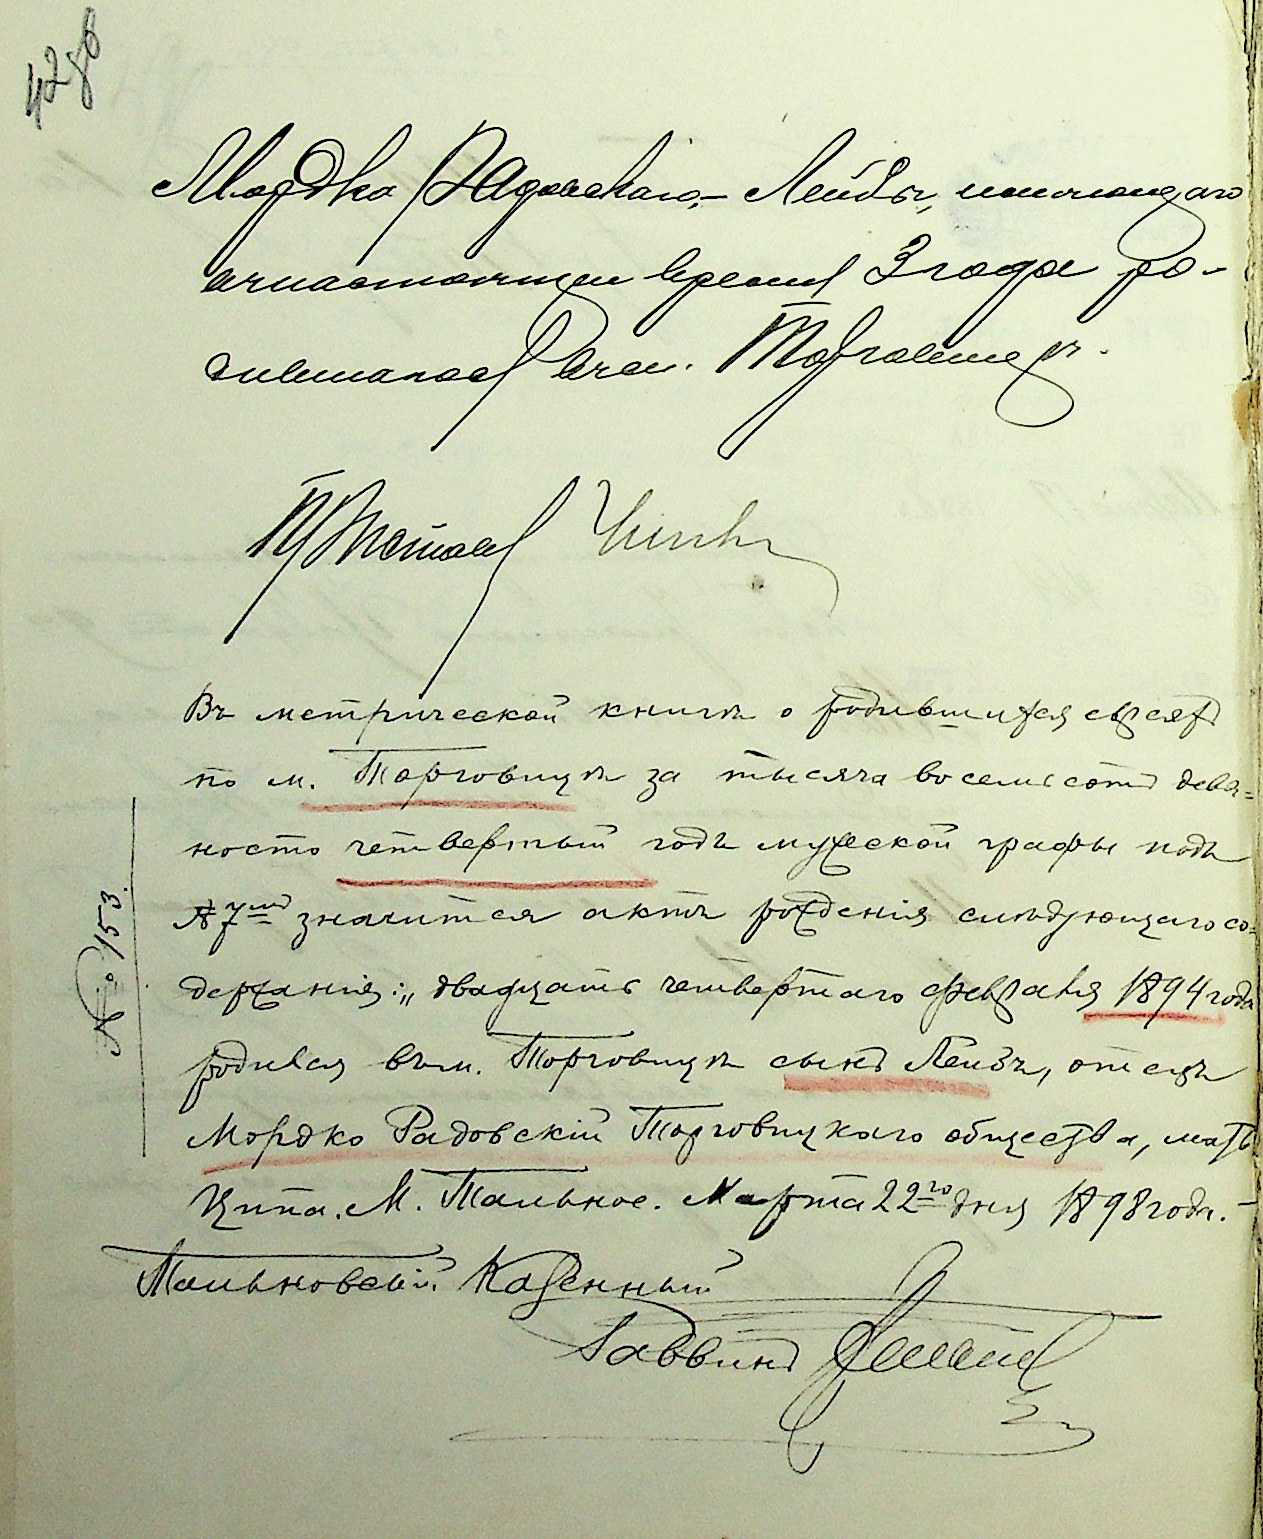 428
Мордка Радовскаго, — Лейбы, имѣющаго
въ настоящее время 3 года ро-
дившагося въ м. Торговицѣ.
Приставъ
Въ метрической книгѣ о родившихся евреяхъ
по м. Торговицѣ за тысяча восемьсотъ девя=
носто четвертый годъ мужеской графы подъ
№ 7мъ значится актъ рожденія слѣдующаго со=
держанія: „двадцать четвертаго февраля 1894 года
родился въ м. Торговицѣ сынъ Лейбъ, отецъ
Мордко Радовскій Торговицкаго общества, мать
Ципа. М. Тальное. Марта 22го дня 1898 года. —
Тальновскій Казенный
Раввинъ
№ 153.